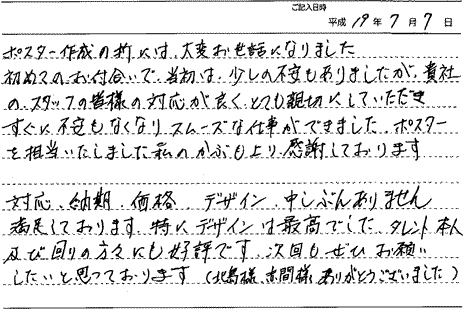 ご記入日時
平成 19 年 7 月 7 日
ポスター作成の折には、大変お世話になりました
初めてのお付合いで、当初は、少しの不安もありましたが、貴社
の、スタッフの皆様の対応が良く、とても親切にしていただき
すぐに不安もなくなり スムーズな仕事ができました。ポスター
を担当いたしました私の方からも 感謝しております
対応、納期、価格、デザイン、申しぶんありません
満足しております 特に デザインは最高でした タレント本人
及び回りの方々にも好評です。次回もぜひお願い
したいと思っております (北島様、本間様、ありがとうございました)